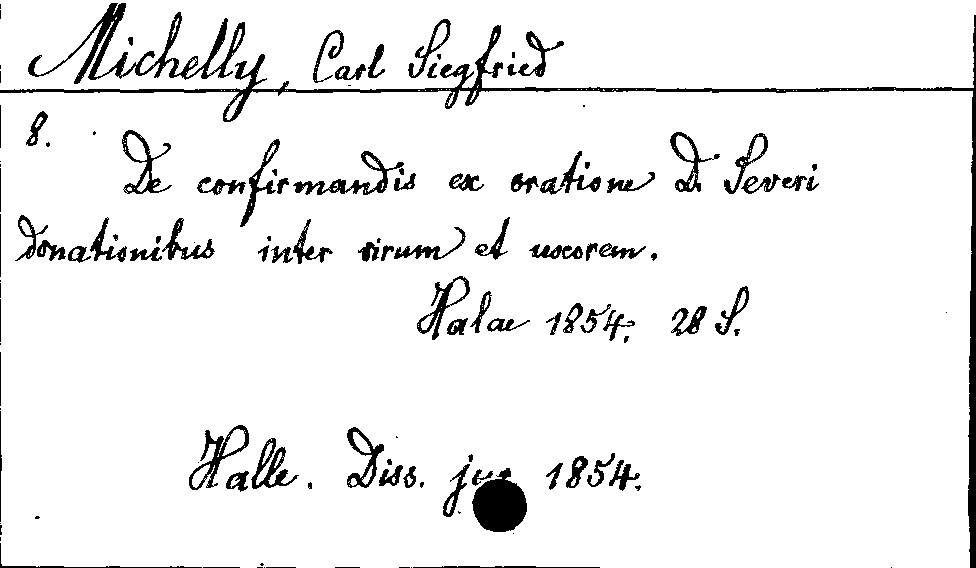 Michelly, Carl Siegfried
8.
De confirmandis ex oratione D. Severi
donationibus inter virum et uxorem.
Halae 1854. 28 S.
Halle. Diss. jur. 1854.